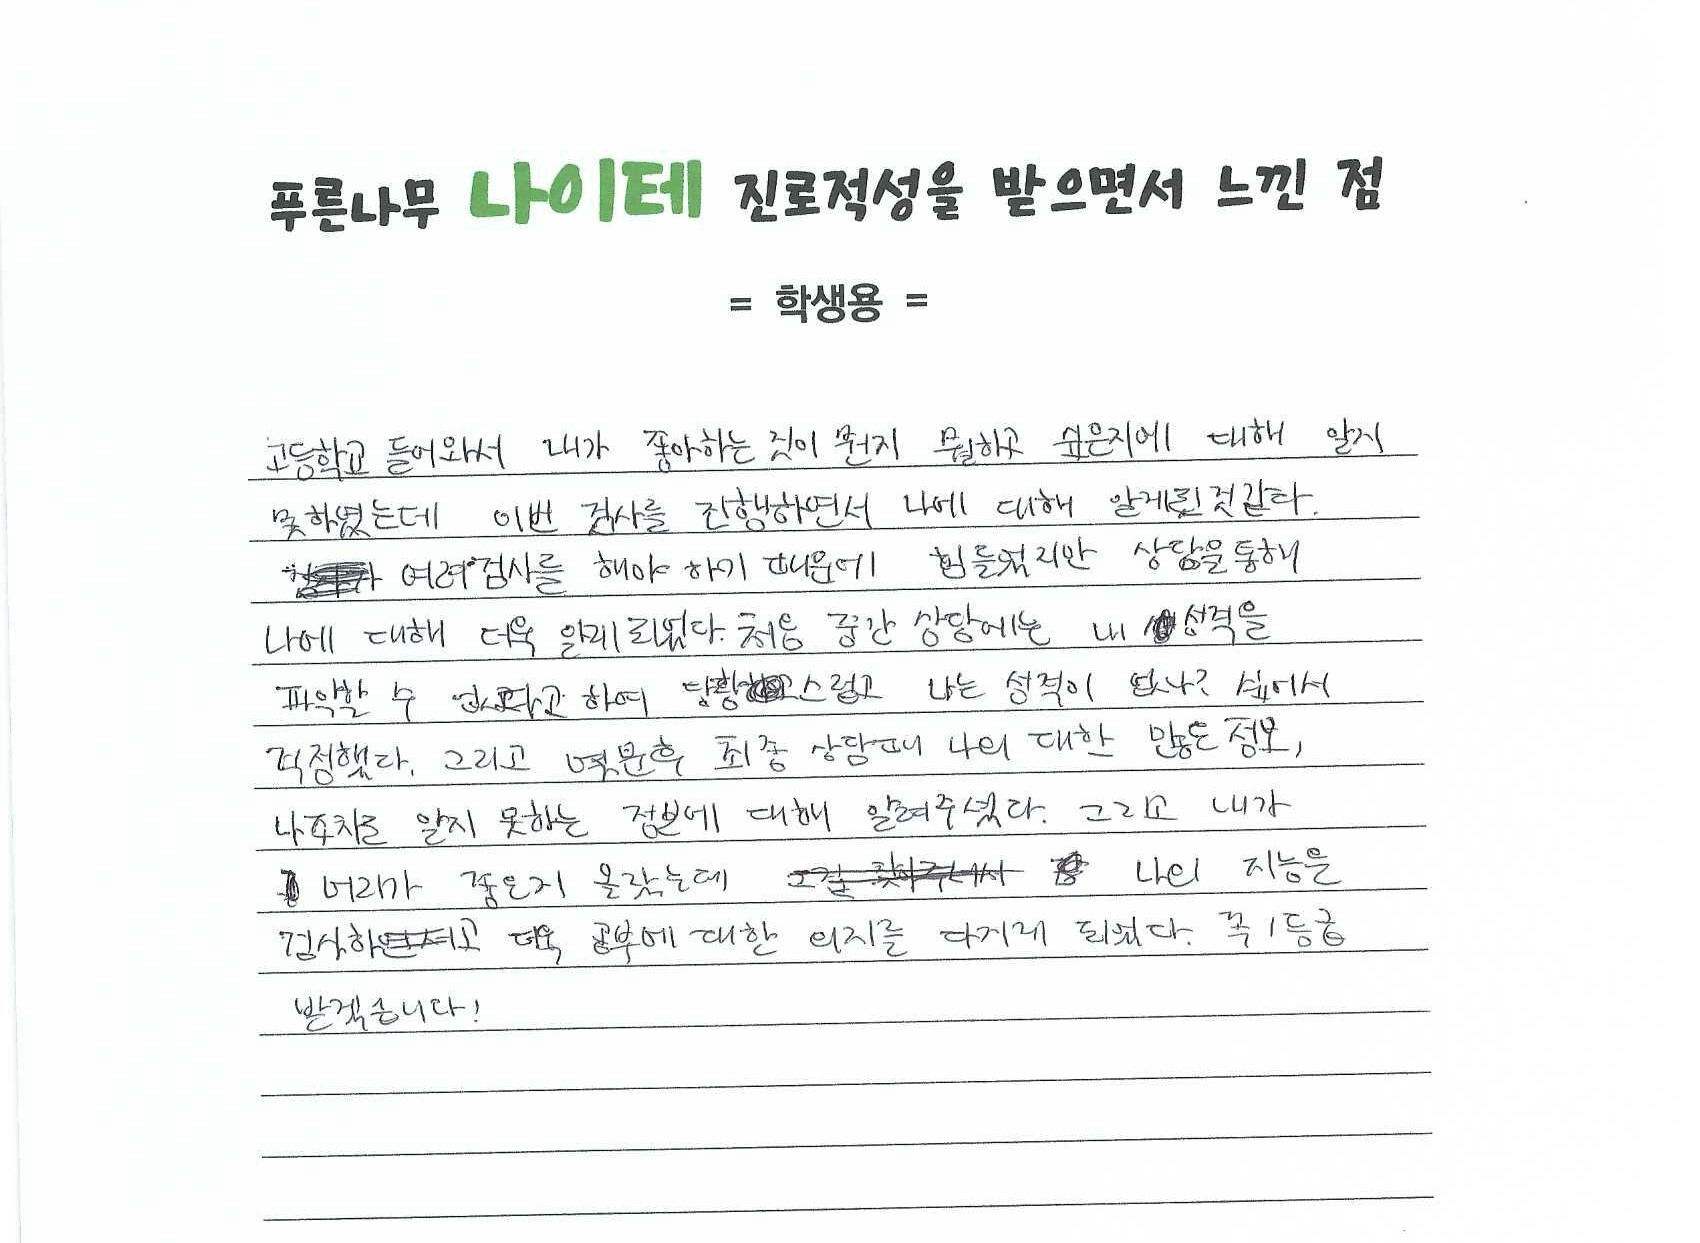 푸른나무 나이테 진로적성을 받으면서 느낀 점
= 학생용 =
고등학교 들어와서 내가 좋아하는 것이 뭔지 뭘하고 싶은지에 대해 알지
못하였는데 이번 검사를 진행하면서 나에 대해 알게된것같다.
여러검사를 해야 하기 때문에 힘들었지만 상담을통해
나에 대해 더욱 알게 되었다. 처음 중간 상담에는 내 성격을
파악할 수 없다고 하여 당황스럽고 나는 성격이 없나? 싶어서
걱정했다. 그리고 몇분후 최종 상담때 나의 대한 많은 정보,
나조차도 알지 못하는 정보에 대해 알려주셨다. 그리고 내가
머리가 좋은지 몰랐는데 나의 지능을
검사하고 더욱 공부에 대한 의지를 다지게 되었다. 꼭 1등급
받겠습니다!